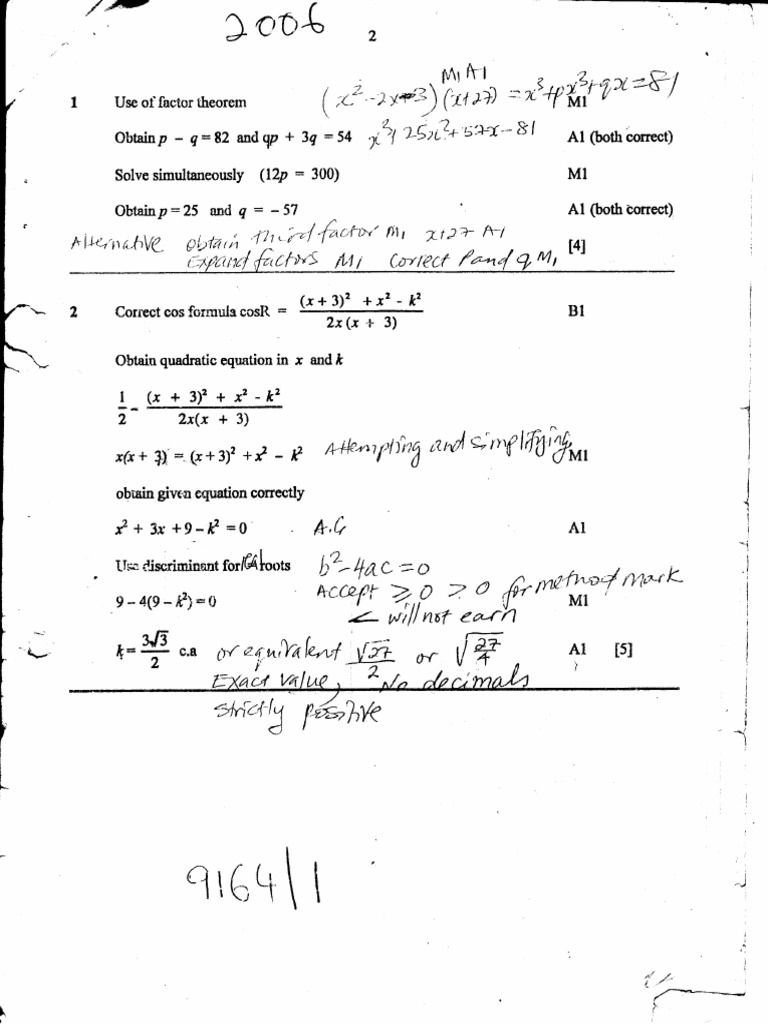 2006
2
M1 A1
1 Use of factor theorem (x² - 2x - 3)(x+27) = x³+px²+qx=81 M1
Obtain p – q = 82 and qp + 3q = 54 x³+25x²+57x-81 A1 (both correct)
Solve simultaneously (12p = 300) M1
Obtain p = 25 and q = – 57 A1 (both correct)
Alternative obtain third factor M1 x+27 A1
[4]
Expand factors M1 Correct P and q M1
2 Correct cos formula cosR = (x + 3)² + x² - k² / 2x (x + 3) B1
Obtain quadratic equation in x and k
1/2 = (x + 3)² + x² - k² / 2x(x + 3)
x(x + 3) = (x + 3)² + x² – k² Attempting and simplifying M1
obtain given equation correctly
x² + 3x + 9 – k² = 0 A.G A1
Use discriminant for roots b²-4ac = 0
Accept ≥ 0 > 0 for method mark
9 – 4(9 – k²) = 0 M1
< will not earn
k = 3√3/2 c.a or equivalent √27/2 or √27/4 A1 [5]
Exact value, No decimals
strictly positive
9164/1